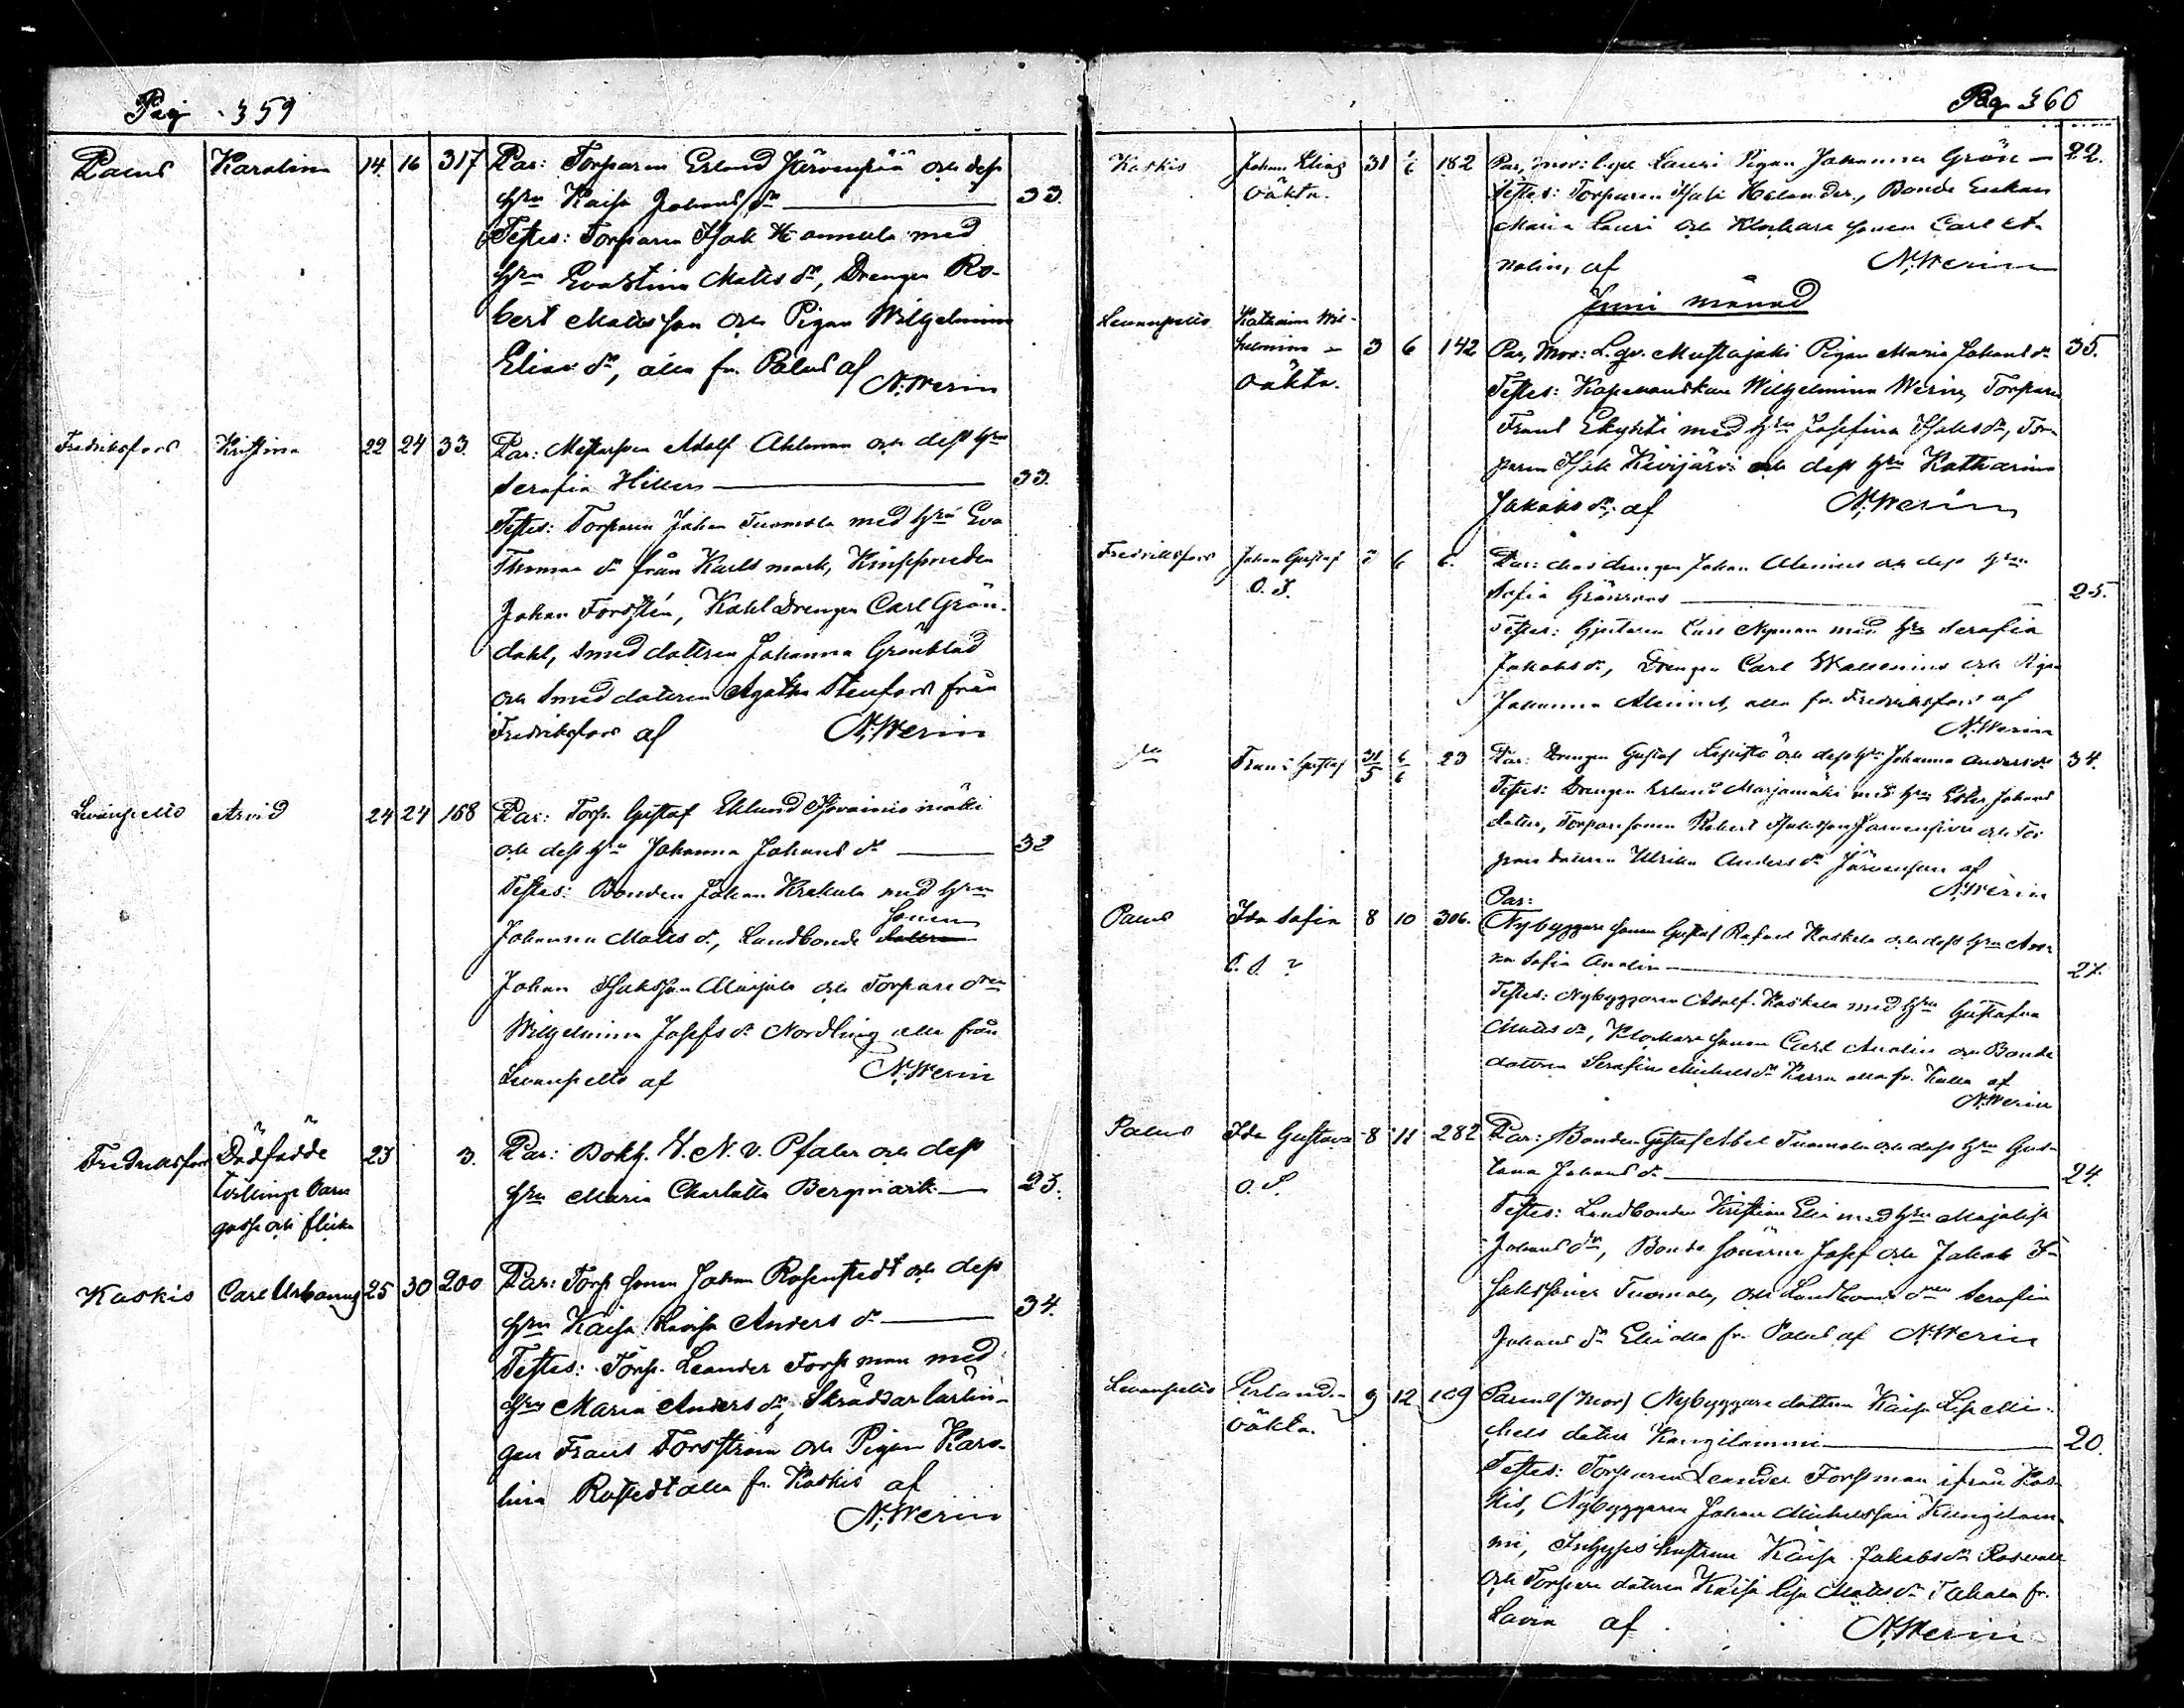 Pag 359
Palus Karolina 14. 16 317 Par: Torparen Erland Järvenpää och dess
hru Kaisa Johansdr 33.
Testes: Torparen Isak Hannula med
hru Eva Stina Matsdr, Drengen Ro-
bert Matsson och Pigan Wilhelmina
Eliasdr, alla fr. Palus af
N. Werin
Fredriksfors Kristina 22 24 33. Par: Adolf Ahlman och dess hru
Serafia Hillers 33.
Testes: Torparen Johan Tuomola med hru Eva
Thomasdr från Karlsmark,
Johan Forstén, Kohldrengen Carl Grön-
dahl, Smeddottren Johanna Grönblad
och Smeddottren Agatha Stenfors från
Fredriksfors af N. Werin
Levanpelto Arvid 24 24 158 Par: Torp. Gustaf Eklund
och dess hru Johanna Johansdr 32
Testes: Bonden Johan Krakula med hru
Sonen
Johanna Matsdr, Landbonde
Johan Isaksson Marjala och Torpare dren
Wilhelmina Josefsdr Nordling alla från
Levanpelto af N. Werin
Fredriksfors Dödfödde 23 3. Par: Bokh. N. v. Pfaler och dess
tvillinge barn hru Maria Charlotta Bergmark 25.
gosse och flicka
Kaskis Carl Urbanus 25 30 200 Par: Torp. sonen Johan Rosenstedt och dess
hru Kaisa Lovisa Andersdr 34.
Testes: Torp. Leander Forsman med
hru Maria Andersdr, Skräddarlärlin-
gen Frans Forsström och Pigan Karo-
lina Rostedt alla fr. Kaskis af
N. Werin
Pag. 360
Kaskis Johan Elias 31 1/6 182 Par, mor: Lauri Pigan Johanna Grön 22.
oäkta. Testes: Torparen Isak Helander, Bonde Enkan
Maria Lauri och Klockare sonen Carl A-
nolin, af N. Werin
Juni månad
Levanpelto Katharina Wil-
helmina 3 6 142 Par, Mor: Mustajoki Pigan Maria Johansdr 35.
oäkta. Testes: Wilhelmina Werin, Torparen
Frans med hru Josefina Isaksdr, Tor-
paren Isak Kivijärvi och dess hru Katharina
Jakobsdr, af N. Werin
Fredriksfors Johan Gustaf 6 6. Par: drengen Johan Alenius och dess hru
O. S. Sofia Grönroos 25.
Testes: Gjutaren Carl Nyman med hru Serafia
Jakobsdr, Drengen Carl Wallenius och Pigan
Johanna Alenius, alla fr. Fredriksfors af
N. Werin
Frans Gustaf 31/5 6/6 23 Par: Drengen Gustaf Lepistö och dess hru Johanna Andersdr 34.
Testes: Drengen Erland Marjamäki med hru Ester Johans
dotter, Torparesonen Robert Isaksson Järvenpää och Tor
pare dottren Ulrika Andersdr Järvenpää af
N. Werin
Par:
Palus Ida Sofia 8 10 306. Nybyggare sonen Gustaf Rafael Koskela och dess hru An-
na Sofia Anolin 27.
Testes: Nybyggaren Adolf Koskela med hru Gustafva
Matsdr, Klockare sonen Carl Anolin och Bonde
dottren Serafia Michelsdr alla fr. af
N. Werin
Palus Ida Gustava 8 11 282 Par: Bonden Gustaf Abel Tuomola och dess hru Gus-
O. S. tava Johansdr 24.
Testes: Landbonden Kristian Elia med hru Majalisa
Johansdr, Bonde sönerne Josef och Jakob I-
saksöner Tuomola, och Landbonde dren Serafia
Johansdr Elia alla fr. Palus af N. Werin
Levanpelto Erland 9 12 109 Parens (mor) Nybyggare dottren Kaisa Lisa Mi-
oäkta. chels dotter Kangilammi 20.
Testes: Torparen Leander Forsman ifrån Kas-
kis, Nybyggaren Johan Michelsson Kangilam-
mi, Inhyses hustrun Kaisa Jakobsdr Rosvall
och Torpare dottren Kaisa Lisa Matsdr Takala fr.
Lavia af N. Werin